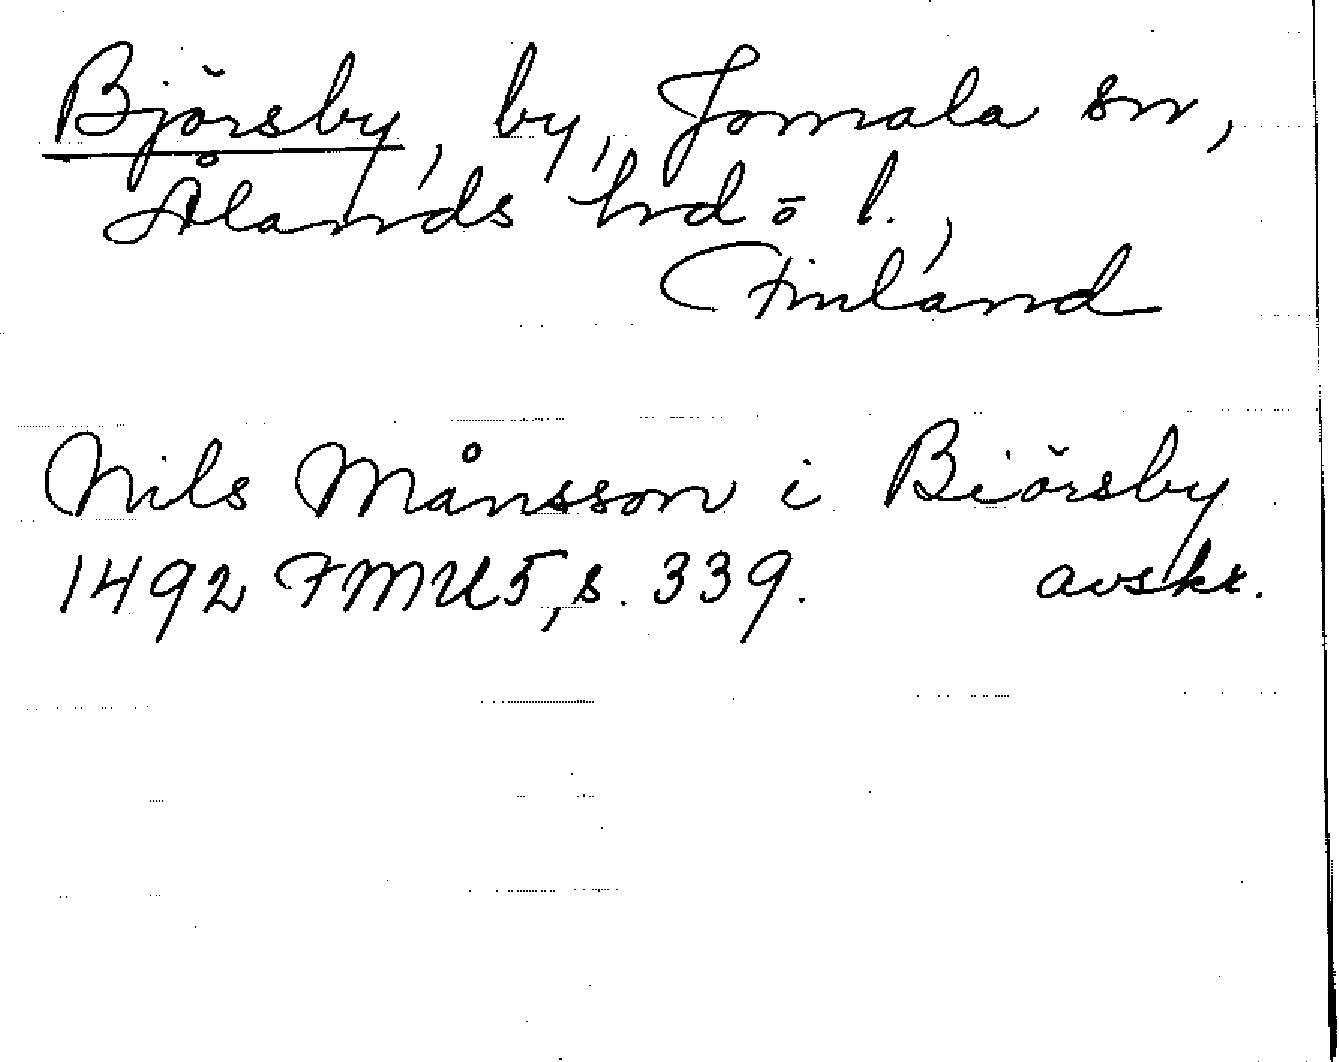 Björsby, by, Jomala sn,
Ålands hrd o l.,
Finland
Nils Månsson i Biörsby
1492 FMU5, s. 339. avskr.